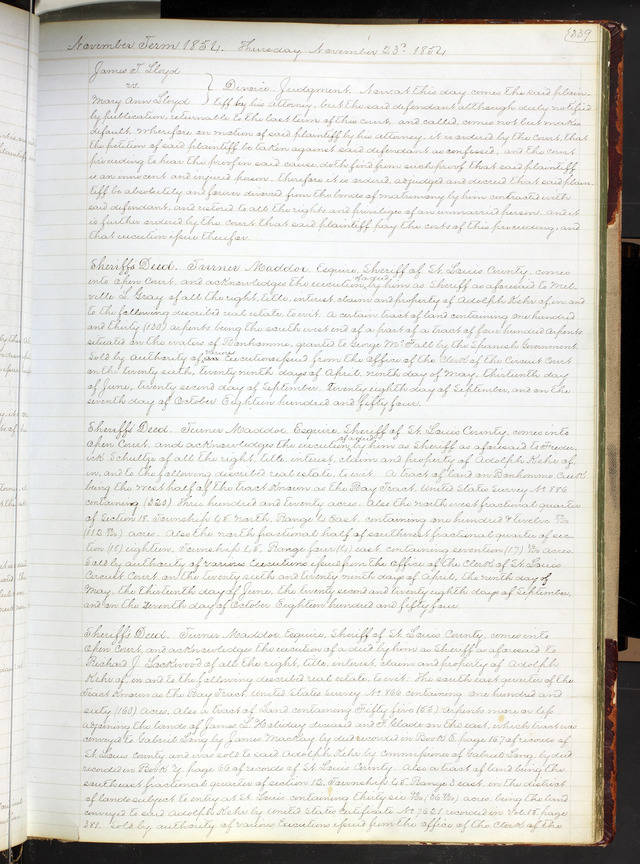 339
November Term 1854. Thursday November 23d 1854
James T. Lloyd
vs. } Divorce. Judgment. Now at this day comes the said plain-
Mary Ann Lloyd } tiff by his attorney, but the said defendant although duly notified
by publication, returnable to the last term of this court, and called, comes not but makes
default, wherefore on motion of said plaintiff by his attorney, it is ordered by the Court, that
the petition of said plaintiff be taken against said defendant as confessed, and the court
proceeding to hear the proof in said cause, doth find from such proof that said plaintiff
is an innocent and injured person. therefore it is ordered, adjudged and decreed that said plain-
tiff be absolutely and forever divorced from the bonds of matrimony by him contracted with
said defendant, and restored to all the rights and privileges of an unmarried person. And it
is further ordered by the Court that said plaintiff pay the costs of this proceeding, and
that execution issue therefor.
Sheriff's Deed. Turner Maddox, Esquire, Sheriff of St. Louis County, comes
into Open Court, and acknowledges the execution of a deed by him as Sheriff as aforesaid to Mel-
ville L. Gray of all the right, title, interest, claim and property of Adolph Kehr of, in and
to the following described real estate, to wit. A certain tract of land containing one hundred
and thirty (130) arpents being the south west end of a part of a tract of four hundred Arpents
situated on the waters of Bonhomme, granted to George McFall by the Spanish Government
Sold by authority of various Executions issued from the Office of the Clerk of the Circuit Court
on the twenty sixth, twenty ninth days of April, ninth day of May, thirteenth day
of June, twenty second day of September, Twenty eighth day of September, and on the
seventh day of October Eighteen hundred and fifty four.
Sheriff's Deed. Turner Maddox Esquire, Sheriff of St. Louis County, comes into
Open Court, and acknowledges the execution of a deed by him as Sheriff as aforesaid to Freder-
ick Schultze of all the right, title, interest, claim and property of Adolph Kehr of,
in, and to the following described real estate, to wit. A tract of land on Bonhomme Creek
being the West half of the tract known as the Bay Tract, United States Survey No 886
containing (320) three hundred and twenty acres. Also the northwest fractional quarter
of Section 18. Township 45 North, Range 4 East, containing one hundred & twelve
(112 ) acres. Also the north fractional half of southwest fractional quarter of sec-
tion (18) eighteen, Township 45. Range four (4) east containing seventeen (17) acres
Sold by authority of various Executions issued from the Office of the Clerk of St. Louis
Circuit Court on the twenty sixth and twenty ninth days of April, the ninth day of
May, the thirteenth day of June, the twenty second and twenty eighth days of September,
and on the seventh day of October Eighteen hundred and fifty four.
Sheriff's Deed. Turner Maddox, Esquire, Sheriff of St. Louis County, comes into
Open Court, and acknowledges the execution of a deed by him as Sheriff as aforesaid to
Richard J. Lockwood of all the right, title, interest, claim and property of Adolph
Kehr of, in and to the following described real estate, to wit. The south east quarter of the
Tract known as the Bay Tract. United States Survey No 886 containing one hundred and
sixty (160) Acres. Also a tract of Land containing Fifty five (55) Arpents more or less
adjoining the lands of James L. Holiday deceased and on the east, which tract was
conveyed to Gabriel Long by James Mackay by deed recorded in Book E. page 167 of records of
St. Louis County and was sold to said Adolph Kehr by Commissioner of Gabriel Long, by deed
recorded in Book Y. page 66 of records of St. Louis County. Also a tract of land being the
southeast fractional quarter of section 13. Township 45. Range 3 east, in the district
of lands subject to entry at St. Louis containing thirty six (36 ) acres. being the land
conveyed to said Adolph Kehr by United States Certificate No recorded in Vol. 18. page
381. Sold by authority of various Executions issued from the office of the Clerk of the